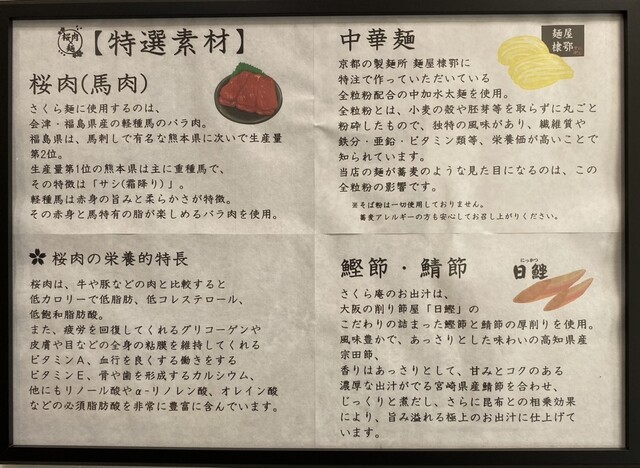 桜肉麺
【特選素材】
桜肉(馬肉)
さくら麺に使用するのは、
会津・福島県産の軽種馬のバラ肉。
福島県は、馬刺しで有名な熊本県に次いで生産量
第2位。
生産量第1位の熊本県は主に重種馬で、
その特徴は「サシ(霜降り)」。
軽種馬は赤身の旨みと柔らかさが特徴。
その赤身と馬特有の脂が楽しめるバラ肉を使用。
中華麺
麺屋
棣鄂
京都の製麺所 麺屋棣鄂に
特注で作っていただいている
全粒粉配合の中加水太麺を使用。
全粒粉とは、小麦の殻や胚芽等を取らずに丸ごと
粉砕したもので、独特の風味があり、繊維質や
鉄分・亜鉛・ビタミン類等、栄養価が高いことで
知られています。
当店の麺が蕎麦のような見た目になるのは、この
全粒粉の影響です。
※そば粉は一切使用しておりません。
蕎麦アレルギーの方も安心してお召し上がりください。
桜肉の栄養的特長
桜肉は、牛や豚などの肉と比較すると
低カロリーで低脂肪、低コレステロール、
低飽和脂肪酸。
また、疲労を回復してくれるグリコーゲンや
皮膚や目などの全身の粘膜を維持してくれる
ビタミンA、血行を良くする働きをする
ビタミンE、骨や歯を形成するカルシウム、
他にもリノール酸やα-リノレン酸、オレイン酸
などの必須脂肪酸を非常に豊富に含んでいます。
鰹節・鯖節
にっかつ
日鰹
さくら庵のお出汁は、
大阪の削り節屋「日鰹」の
こだわりの詰まった鰹節と鯖節の厚削りを使用。
風味豊かで、あっさりとした味わいの高知県産
宗田節、
香りはあっさりとして、甘みとコクのある
濃厚な出汁がでる宮崎県産鯖節を合わせ、
じっくりと煮だし、さらに昆布との相乗効果
により、旨み溢れる極上のお出汁に仕上げて
います。